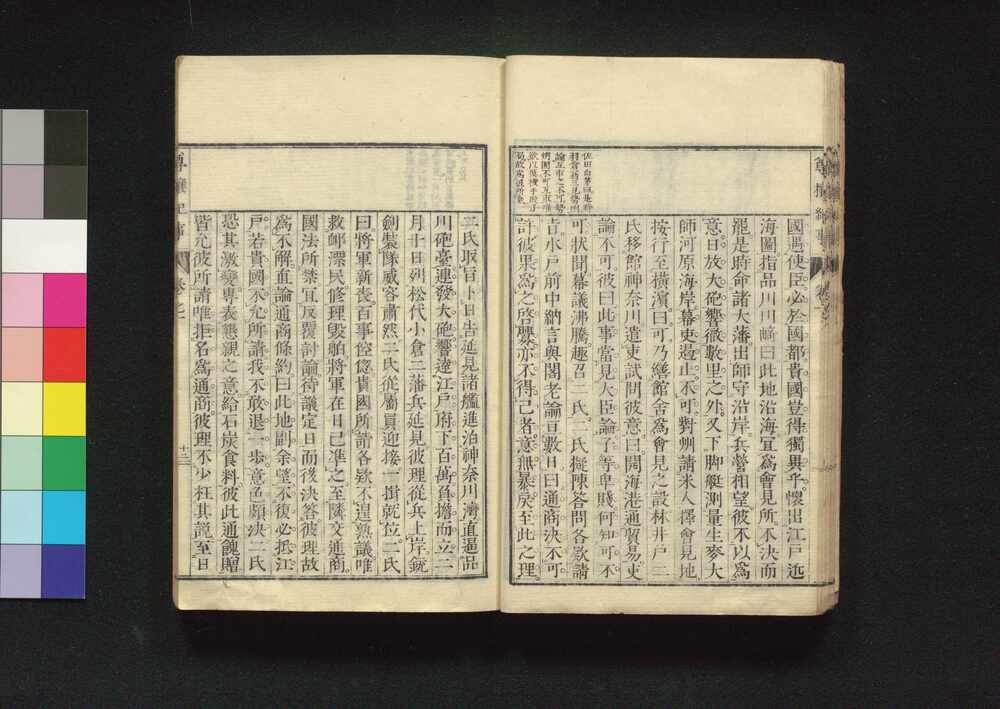 國遇使臣必於國都貴國豈得獨異乎懷出江戶近
海圖指品川川崎曰此地沿海宜爲會見所不決而
罷是時命諸大藩出師守沿岸兵營相望彼不以爲
意日放大砲響徹數里之外又下脚艇測量生麥大
師河原海岸幕吏遏止不可對州請米人擇會見地
按行至橫濱曰可乃繕館舍爲會見之設林井戶二
氏移館神奈川遣吏試問彼意曰開海港通貿易吏
論不可彼曰此事當見大臣論子等卑賤何知可不
可狀聞幕議沸騰趣召二氏二氏擬陳答問各欵請
旨水戶前中納言與閣老論亘數日曰通商決不可
許彼果爲之啓釁亦不得已者意無暴戾至此之理
尊攘紀事
卷之一
十三
二氏取旨卜日告延見諸艦進泊神奈川灣直逼品
川砲臺連發大砲響達江戶府下百萬負擔而立二
月十日列松代小倉二藩兵延見彼理從兵上岸銃
劍裝隊威容肅然二氏從屬員迎接一揖就位二氏
曰將軍新喪百事倥偬貴國所請各欵不遑熟議唯
救邮漂民修理毀舶將軍在日已準之至隣交通商
國法所禁宜反覆討論待議定日而後決答彼理故
爲不解直論通商條約曰此地副余望不復必抵江
戶若貴國不允所請我不敢退一步意色頗決二氏
恐其激變專表懇親之意給石炭食料彼此通餽贈
皆允彼所請唯拒名爲通商彼理不少枉其說至日